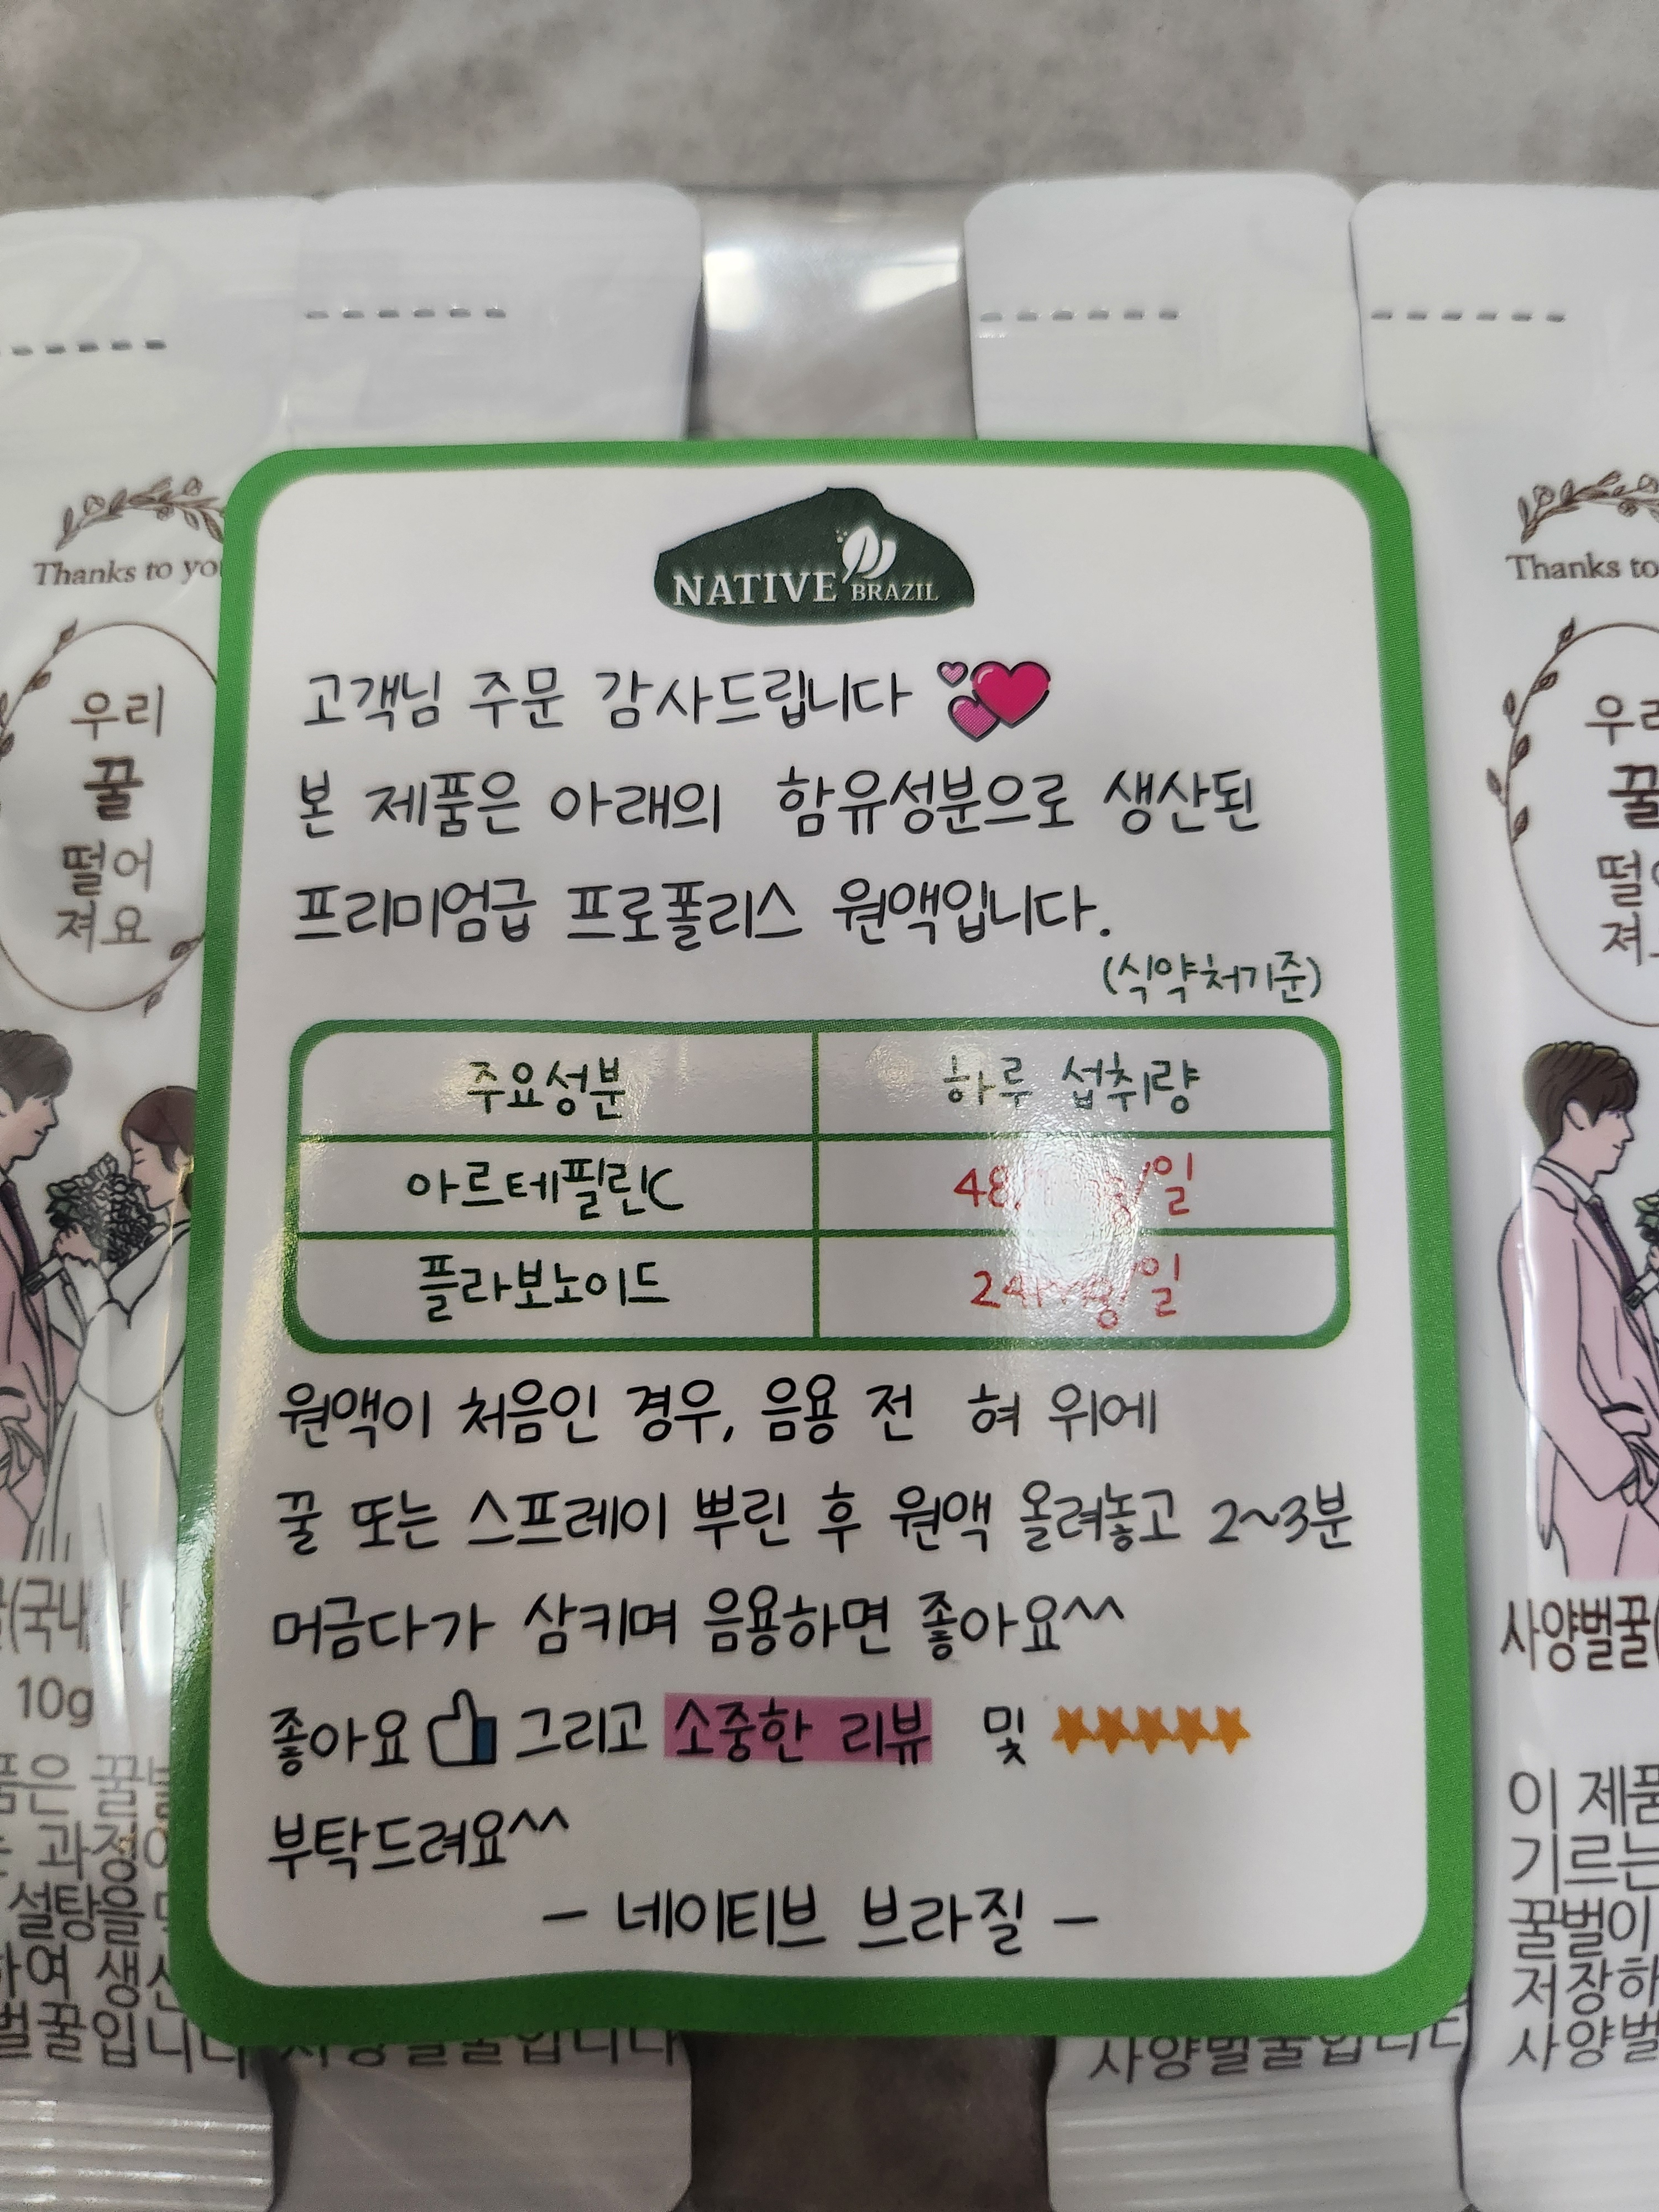 NATIVE BRAZIL
고객님 주문 감사드립니다
본 제품은 아래의 함유성분으로 생산된
프리미엄급 프로폴리스 원액입니다.
(식약처기준)
주요성분 하루 섭취량
아르테필린C /일
플라보노이드 24mg/일
원액이 처음인 경우, 음용 전 혀 위에
꿀 또는 스프레이 뿌린 후 원액 올려놓고 2~3분
머금다가 삼키며 음용하면 좋아요^^
좋아요 그리고 소중한 리뷰 및
부탁드려요^^
- 네이티브 브라질 -
Thanks to
우리
꿀
떨어
져요
10g
설탕을
사양벌꿀입니다
Thanks to
꿀
사양벌꿀
이 제품
기르는
꿀벌이
저장하
사양벌
사양벌꿀입니다